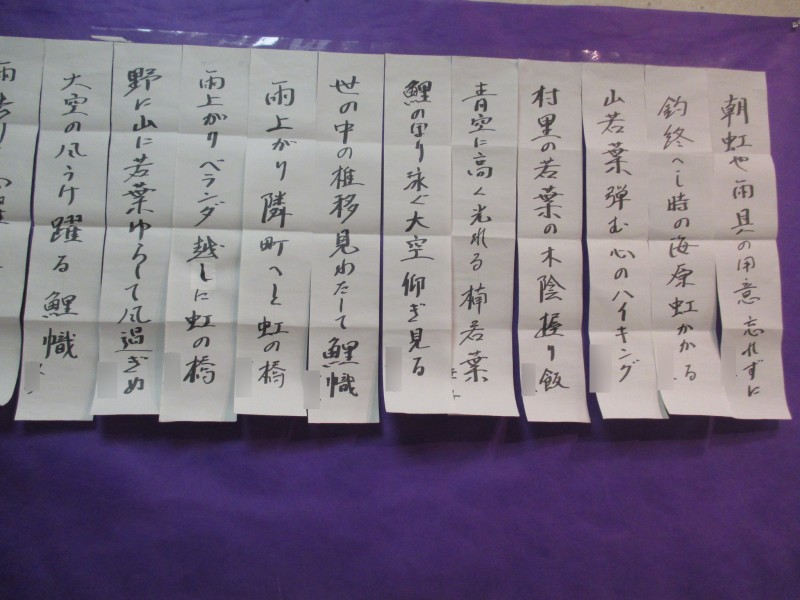 朝虹や雨具の用意忘れずに
釣終へし時の海原虹かかる
山若葉弾む心のハイキング
村里の若葉の木陰握り飯
青空に高く光れる楠若葉
鯉の宙り泳ぐ大空仰ぎ見る
世の中の推移見わたして鯉幟
雨上がり隣町へと虹の橋
雨上がりベランダ越しに虹の橋
野に山に若葉ゆらして風過ぎぬ
大空の風うけ躍る鯉幟